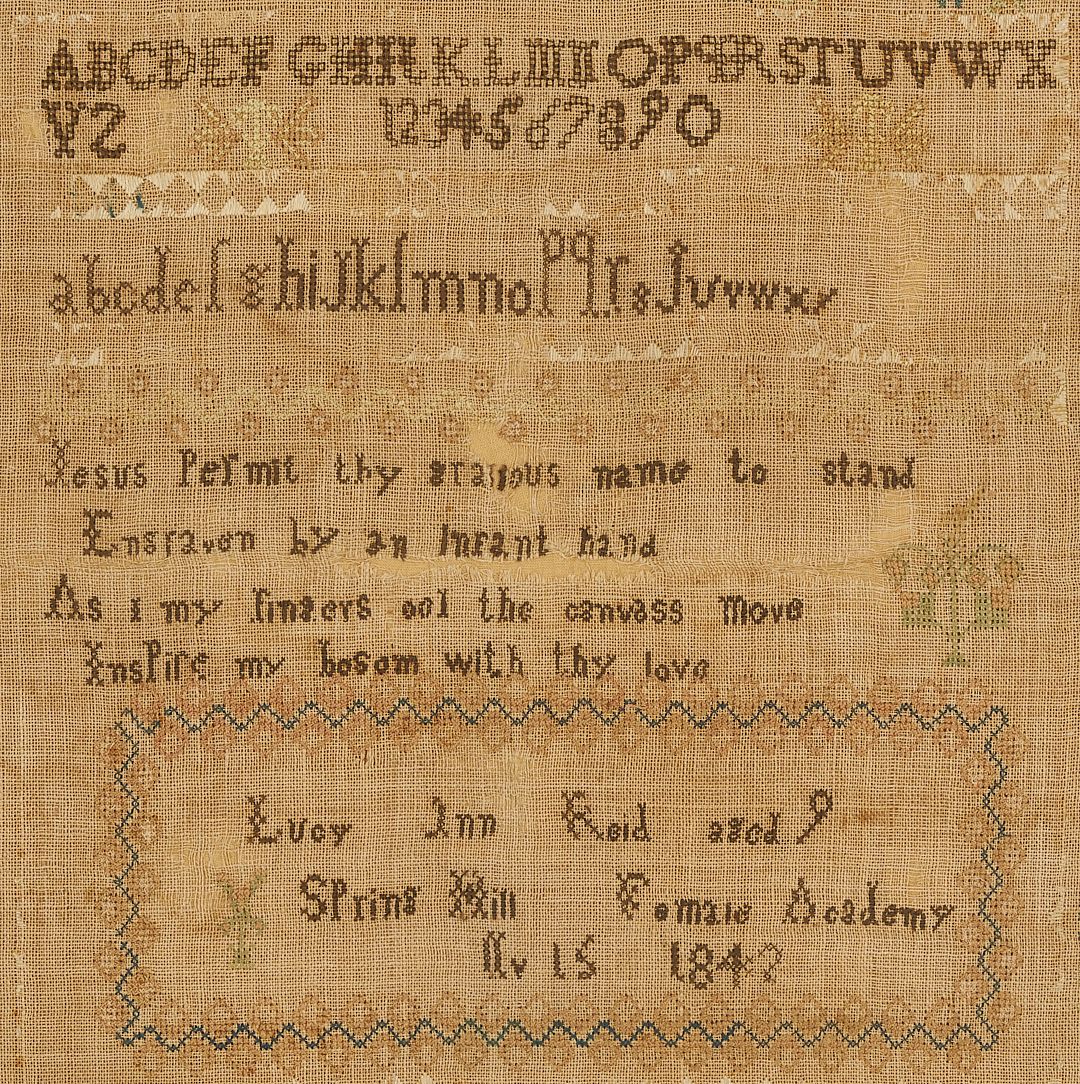 ABCDEFGHIJKLMNOPQRSTUVWX
YZ 1234567890
abcdefghijklmnopqrsJuvwxy
Jesus Permit thy gracious name to stand
Engraven by an Infant hand
As i my fingers oel the canvass Move
InsPire my bosom with thy love
Lucy Ann Reid aged 9
SPring Hill Female Academy
Nv 15